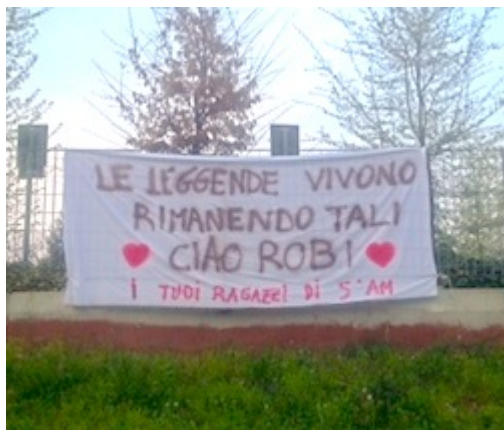 LE LEGGENDE VIVONO
RIMANENDO TALI
CIAO ROBI
I TUOI RAGAZZI DI 5°AM